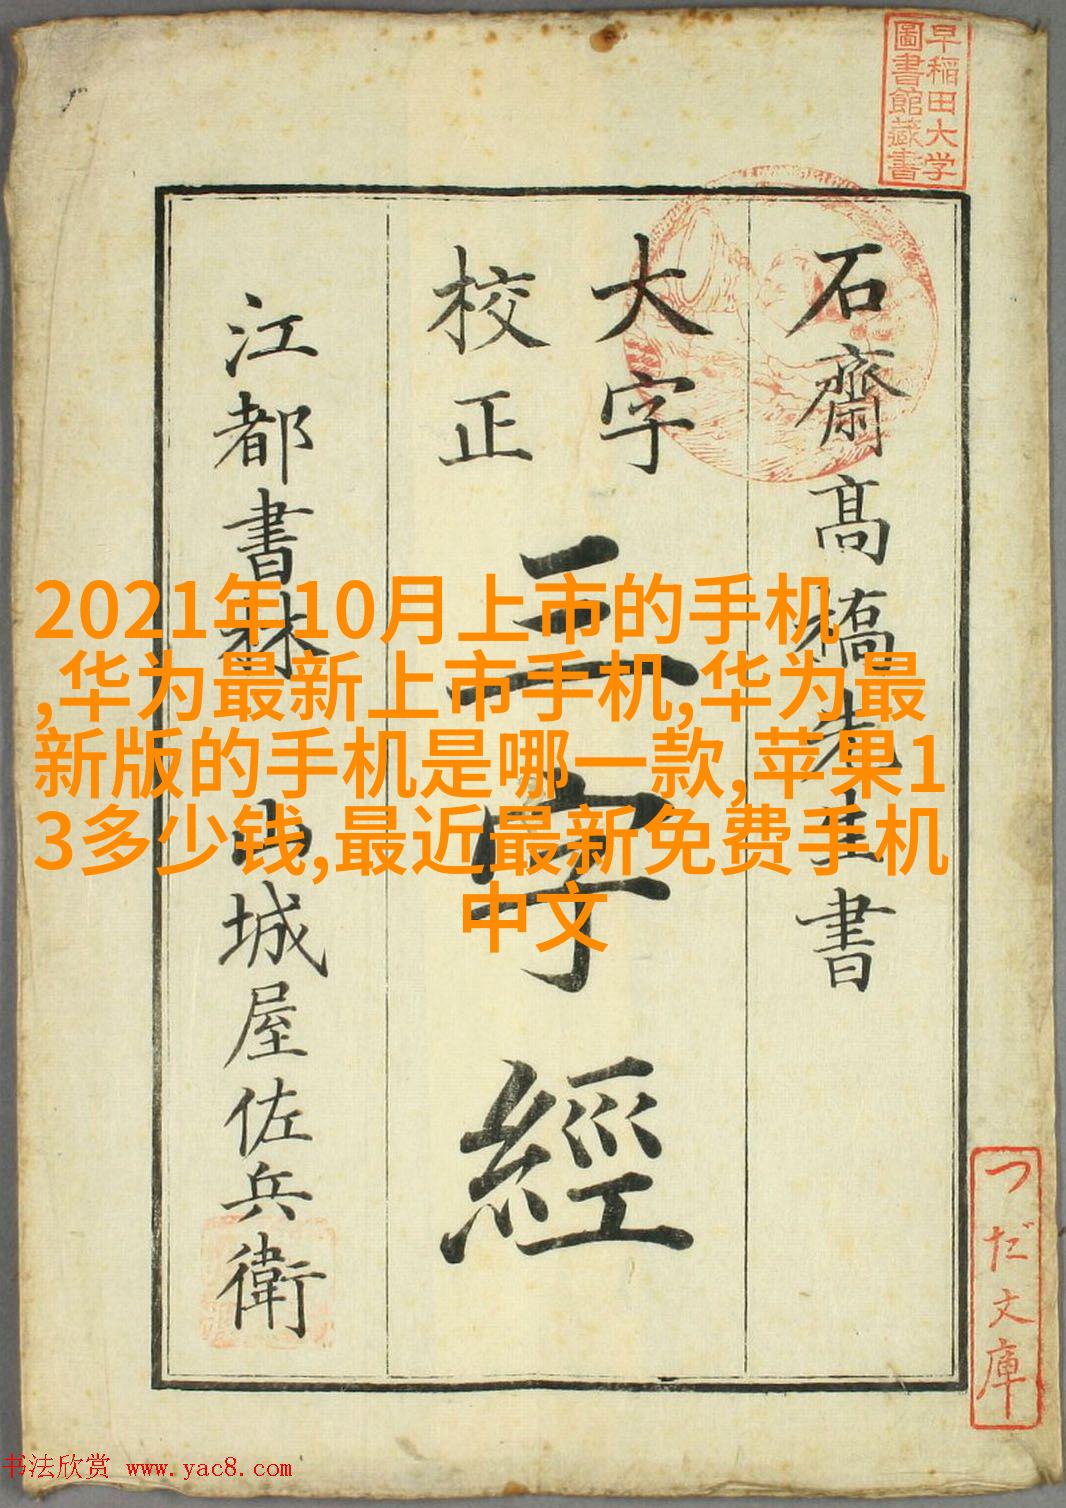 早稲田大学
圖書館藏書
石齋髙橋先生書
大字
校正
三字經
江都書林 山城屋佐兵衛
つだ文庫
2021年10月上市的手机
,华为最新上市手机,华为最
新版的手机是哪一款,苹果1
3多少钱,最近最新免费手机
中文
书法欣赏 www.yac8.com